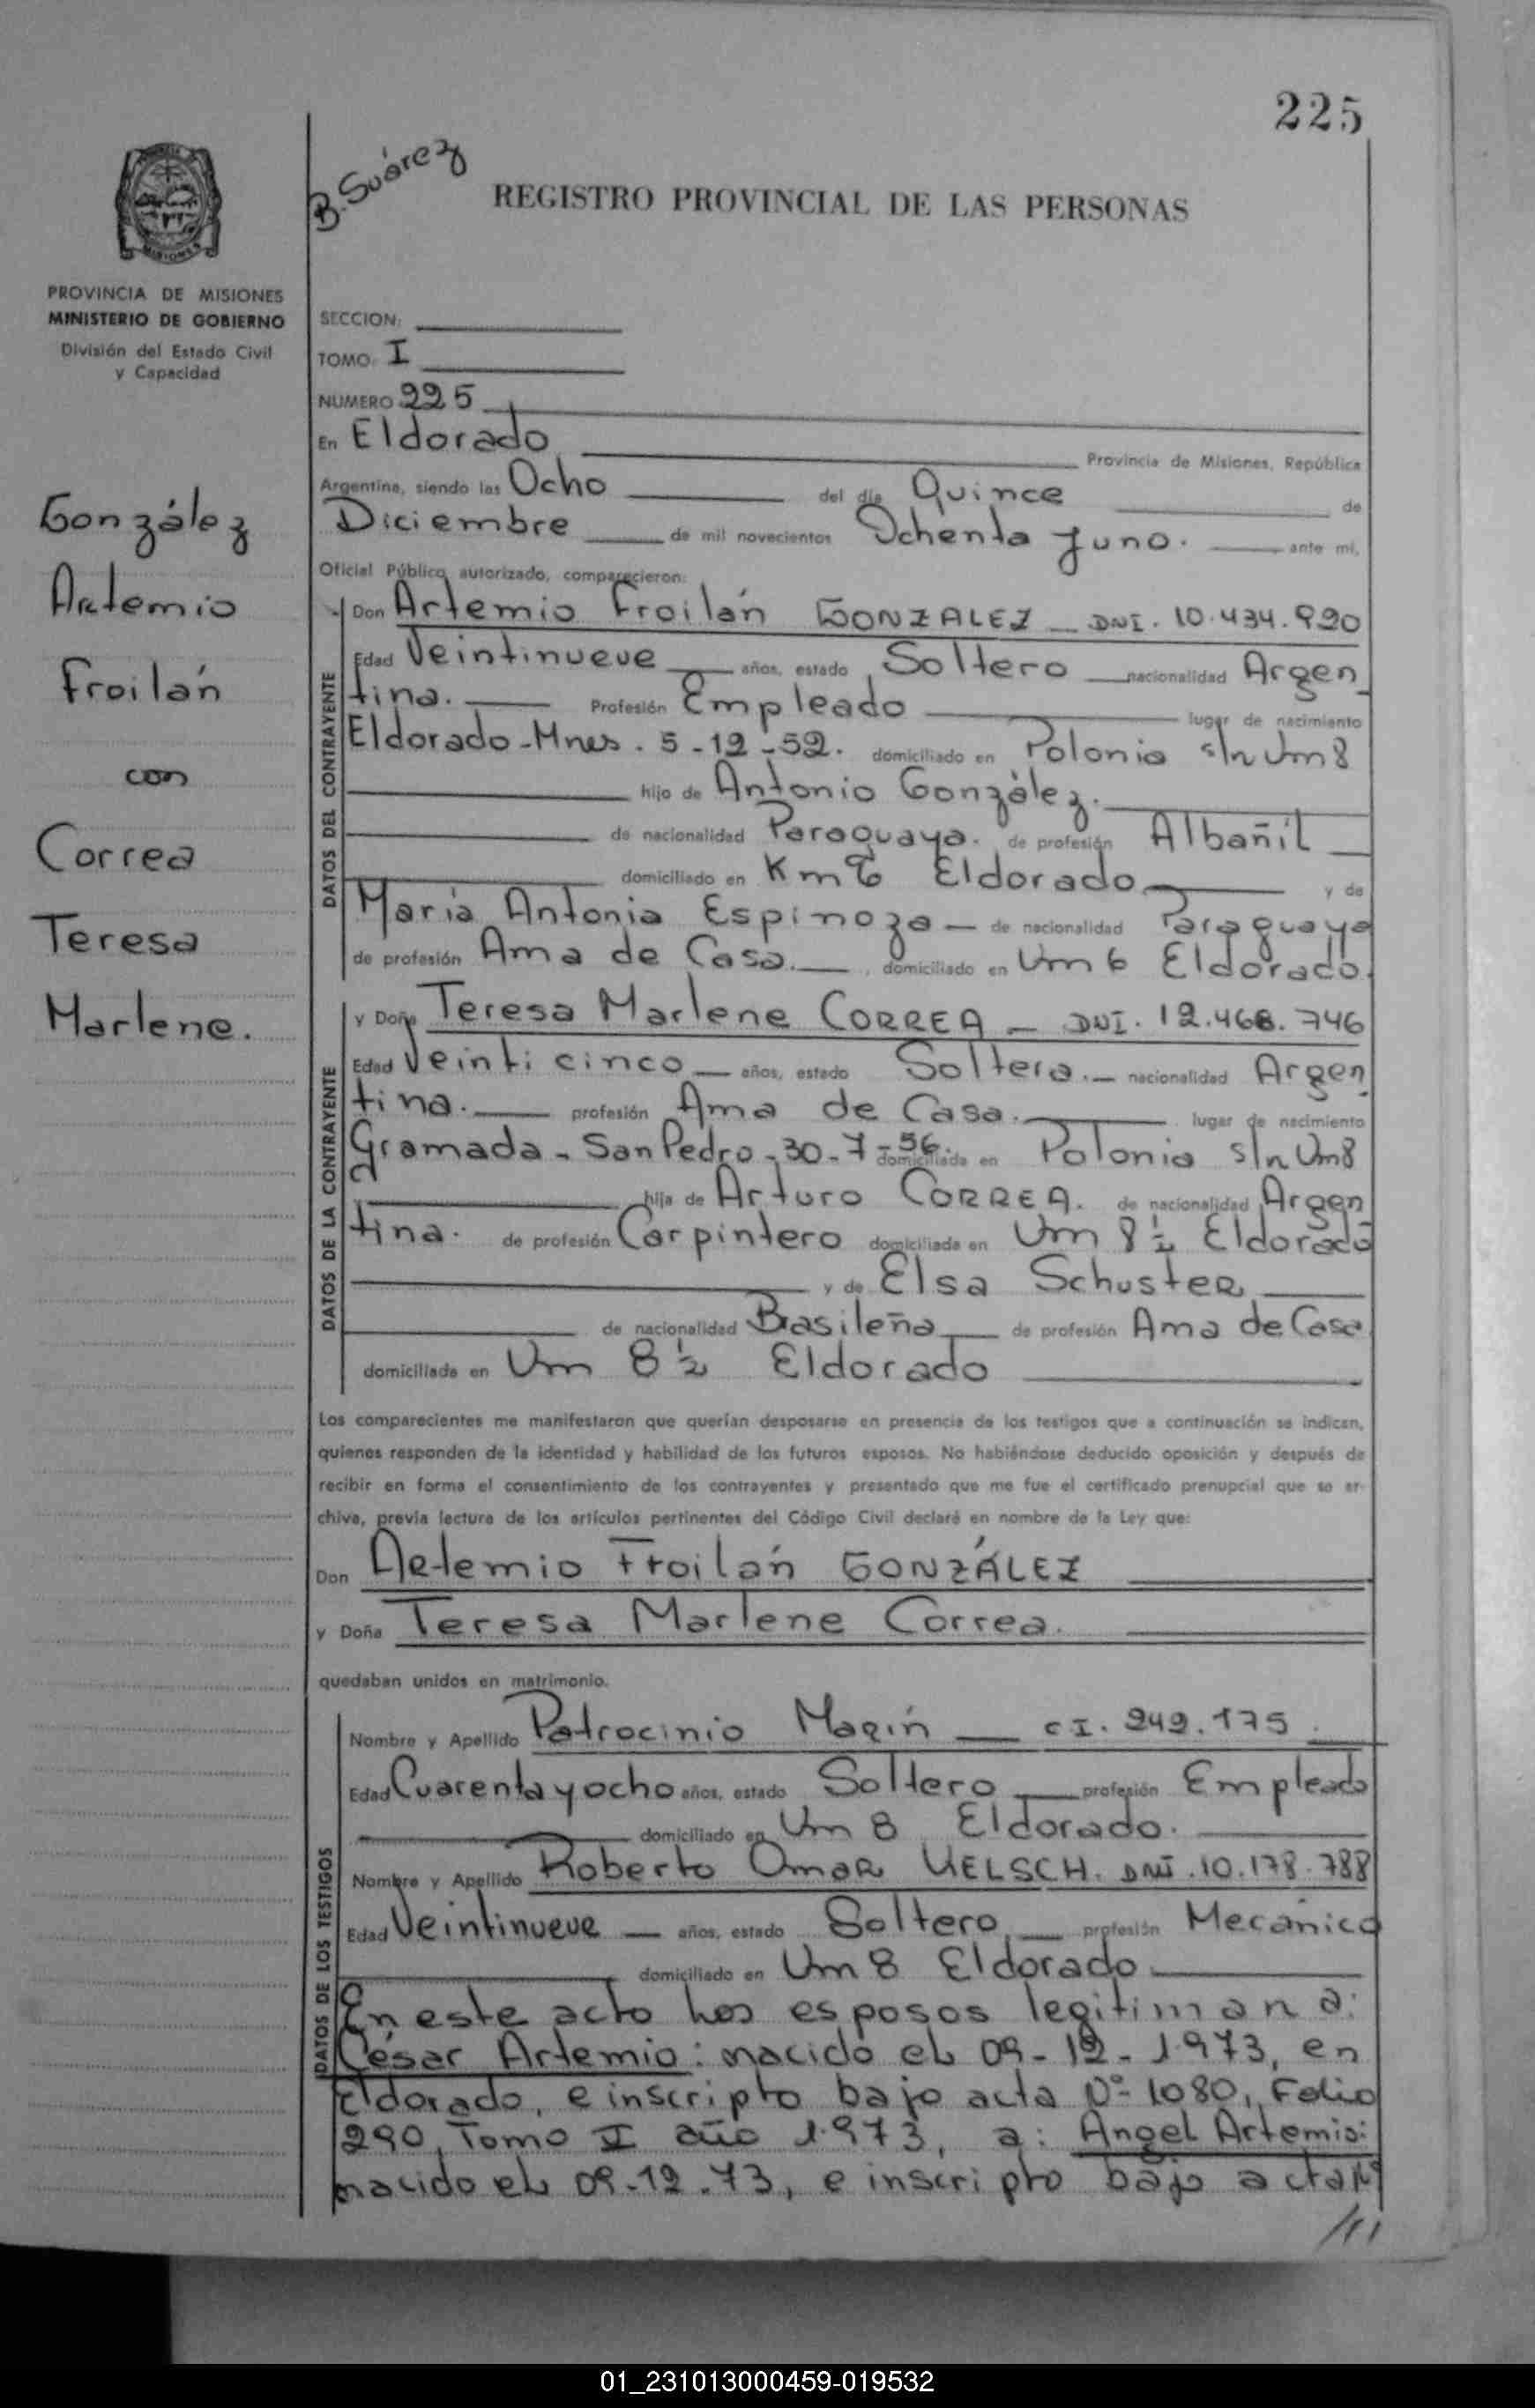 225
B. Suárez
REGISTRO PROVINCIAL DE LAS PERSONAS
PROVINCIA DE MISIONES
MINISTERIO DE GOBIERNO
División del Estado Civil
y Capacidad
SECCION:
TOMO: I
NUMERO 225
En Eldorado Provincia de Misiones, República
Argentina, siendo las Ocho del día Quince de
Diciembre de mil novecientos Ochenta y uno. ante mi,
Oficial Público autorizado, comparecieron:
González
Artemio
Froilán
con
Correa
Teresa
Marlene.
DATOS DEL CONTRAYENTE
Don Artemio Froilán GONZALEZ DNI. 10.434.920
Edad Veintinueve años, estado Soltero nacionalidad Argen
tina. Profesión Empleado lugar de nacimiento
Eldorado-Mnes. 5-12-52. domiciliado en Polonia s/n Km 8
hijo de Antonio González.
de nacionalidad Paraguaya. de profesión Albañil
domiciliado en Km 6 Eldorado y de
María Antonia Espinoza de nacionalidad Paraguaya
de profesión Ama de Casa. domiciliado en Km 6 Eldorado.
DATOS DE LA CONTRAYENTE
y Doña Teresa Marlene CORREA DNI. 12.468.746
Edad Veinticinco años, estado Soltera. nacionalidad Argen
tina. profesión Ama de Casa. lugar de nacimiento
Gramada - San Pedro - 30-7-56. domiciliada en Polonia s/n Km 8
hija de Arturo CORREA. de nacionalidad Argen
tina. de profesión Carpintero domiciliada en Km 8 ½ Eldorado
y de Elsa Schuster
de nacionalidad Brasileña de profesión Ama de Casa
domiciliada en Km 8 ½ Eldorado
Los comparecientes me manifestaron que querían desposarse en presencia de los testigos que a continuación se indican,
quienes responden de la identidad y habilidad de los futuros esposos. No habiéndose deducido oposición y después de
recibir en forma el consentimiento de los contrayentes y presentado que me fue el certificado prenupcial que se ar-
chiva, previa lectura de los artículos pertinentes del Código Civil declaré en nombre de la Ley que:
Don Artemio Froilán GONZÁLEZ
y Doña Teresa Marlene Correa.
quedaban unidos en matrimonio.
DATOS DE LOS TESTIGOS
Nombre y Apellido Patrocinio Marín CI. 242.175
Edad Cuarenta y ocho años, estado Soltero profesión Empleado
domiciliado en Km 8 Eldorado.
Nombre y Apellido Roberto Omar UELSCH. DNI. 10.178.788
Edad Veintinueve años, estado Soltero profesión Mecánico
domiciliado en Km 8 Eldorado
En este acto los esposos legitiman a:
César Artemio: nacido el 09-12-1.973, en
Eldorado, e inscripto bajo acta Nº 1080, Folio
290, Tomo II año 1.973, a: Angel Artemio:
nacido el 09.12.73, e inscripto bajo acta Nº
///
01_231013000459-019532